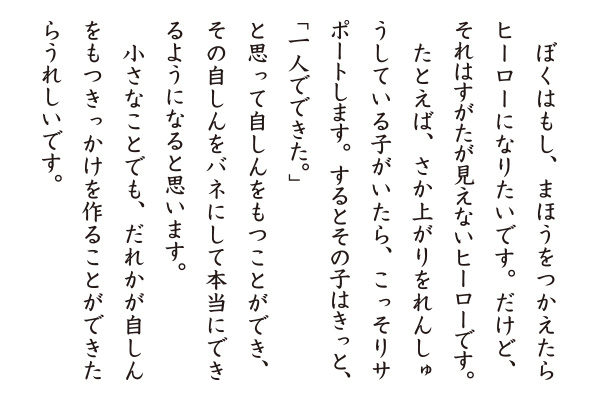 ぼくはもし、まほうをつかえたら
ヒーローになりたいです。だけど、
それはすがたが見えないヒーローです。
たとえば、さか上がりをれんしゅ
うしている子がいたら、こっそりサ
ポートします。するとその子はきっと、
「一人でできた。」
と思って自しんをもつことができ、
その自しんをバネにして本当にでき
るようになると思います。
小さなことでも、だれかが自しん
をもつきっかけを作ることができた
らうれしいです。